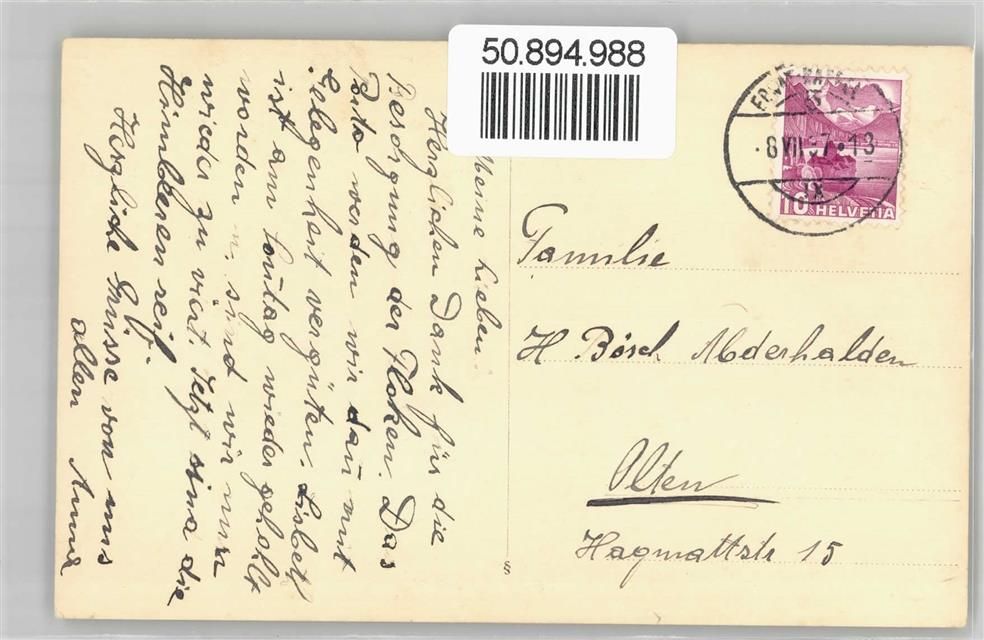 50.894.988
Meine Lieben.
Herzlichen Dank für die
Besorgung der Floken. Das
Porto werden wir dañ mit
Gelegenheit vergüten. Lisbetl
ist am Soñtag wieder geholt
worden u. sind wir nun
wieder zu viert. Jetzt sind die
Himbeeren reif.
Herzliche Grüsse von uns
allen Anna
8 VII 37 • 13
IX
10 HELVETIA
Familie
H Bösch Abderhalden
Olten
Hagmattstr 15
§